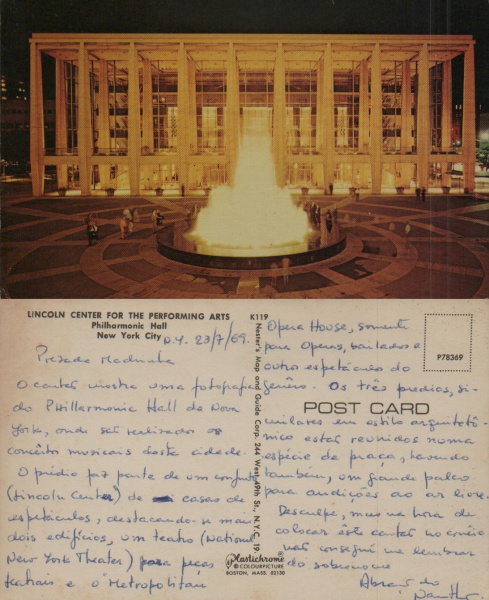 LINCOLN CENTER FOR THE PERFORMING ARTS
Philharmonic Hall
New York City
K119
N.Y. 23/7/69.
Prezada Madrinha
O cartão mostra uma fotografia
do Philharmonic Hall de Nova
York, onde são realizados os
concêrto musicais desta cidade.
O prédio faz parte de um conjunto
(Lincoln Center) de casas de
espetáculos, destacando-se mais
dois edifícios, um teatro (National
New York Theater) para peças
teatrais e o Metropolitan
Nester's Map and Guide Corp. 244 West 49th St., N.Y.C. 19
Plastichrome
® COLOURPICTURE
BOSTON, MASS. 02130
P78369
POST CARD
Opera House, somente
para Operas, bailados e
outro espetáculo do
genêro. Os três predios, si-
milares em estilo arquitetô-
nico estão reunidos numa
espécie de praça, havendo
também, um grande palco
para audições ao ar livre.
Desculpe, mas na hora de
colocar êste cartão no correio
não consegui me lembrar
do sobrenome
Abraço do